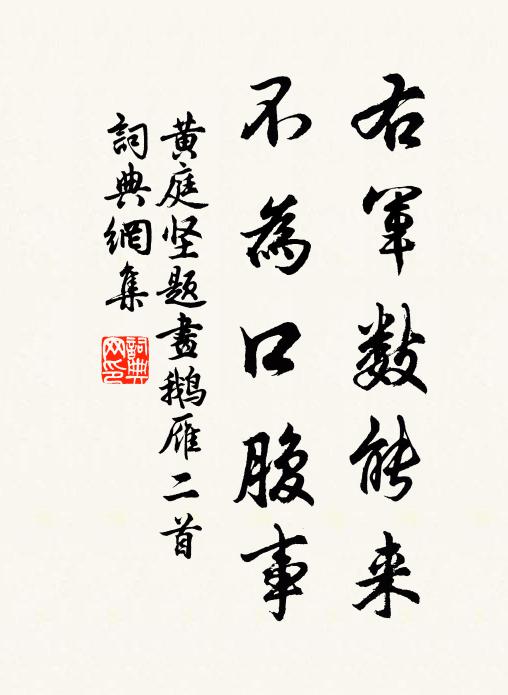 右军数能来
不為口腹事
黄庭坚题畫鹅雁二首
詞典網集
詞典网印